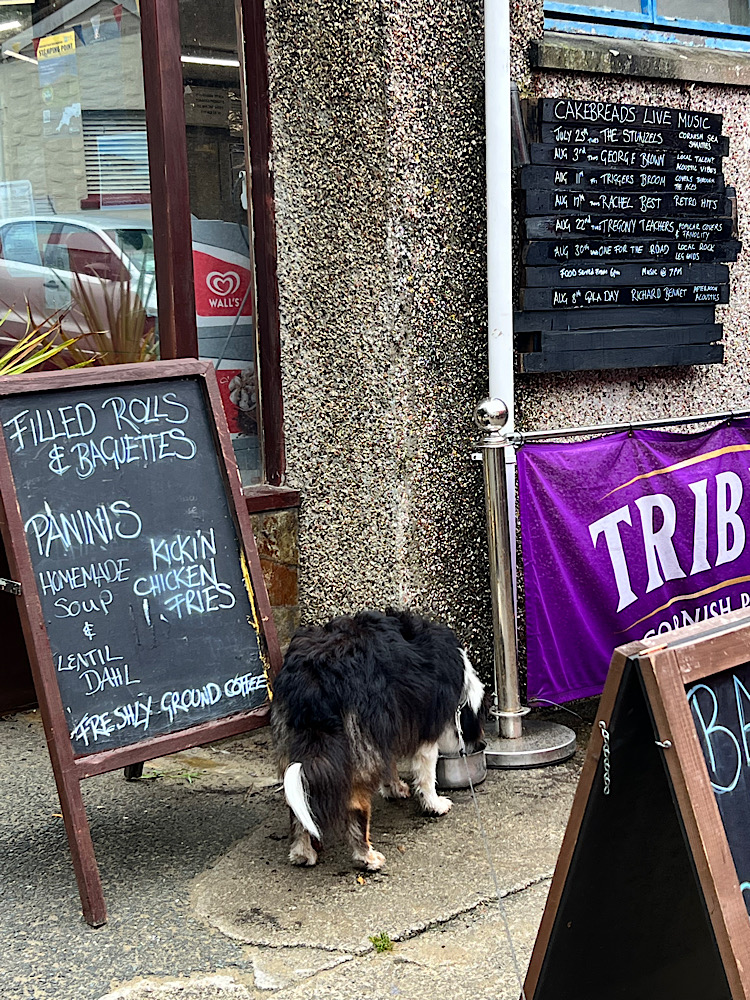 STAMPING POINT
WALL'S
FILLED ROLLS
& BAGUETTES
PANINIS
HOMEMADE
SOUP
&
LENTIL
DAHL
KICKIN
CHICKEN
& FRIES
FRESHLY GROUND COFFEE
CAKEBREADS LIVE MUSIC
JULY 25TH THE STUNZELS CORNISH SEA SHANTIES
AUG 3RD GEORGE BROWN LOCAL TALENT ACOUSTIC VIBES
AUG 11TH TRIGGERS BROOM COVERS THROUGH THE AGES
AUG 17TH RACHEL BEST RETRO HITS
AUG 22ND TREGONY TEACHERS POPULAR COVERS & FRIVOLITY
AUG 30TH ONE FOR THE ROAD LOCAL ROCK LEGENDS
FOOD SERVED FROM 6PM MUSIC @ 7PM
AUG 8TH GALA DAY RICHARD BENNET AFTERNOON ACOUSTICS
TRIB
CORNISH P
BA